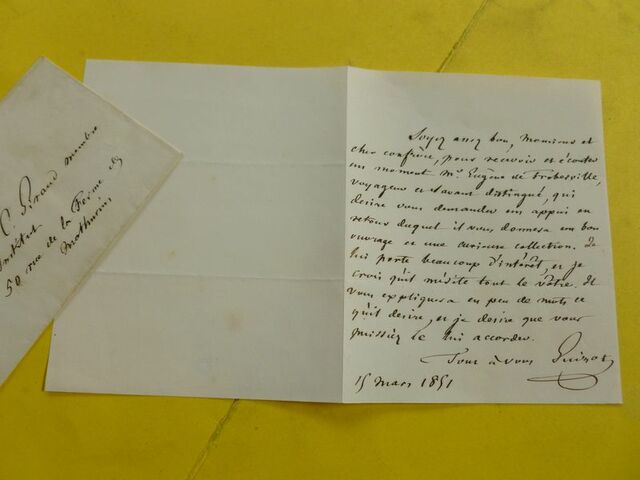 C. Giraud membre
Institut
50 rue de la Ferme des
Mathurins
Soyez assez bon, Monsieur et
cher confrère, pour recevoir et écouter
un moment Mr. Eugène de Froberville,
voyageur et savant distingué, qui
désire vous demander un appui en
retour duquel il vous donnera un bon
ouvrage et une curieuse collection. Je
lui porte beaucoup d'intérêt, et je
crois qu'il mérite tout le vôtre. Il
vous expliquera en peu de mots ce
qu'il désire, et je desire que vous
puissiez le lui accorder.
Tout à vous Guizot
15 Mars 1851